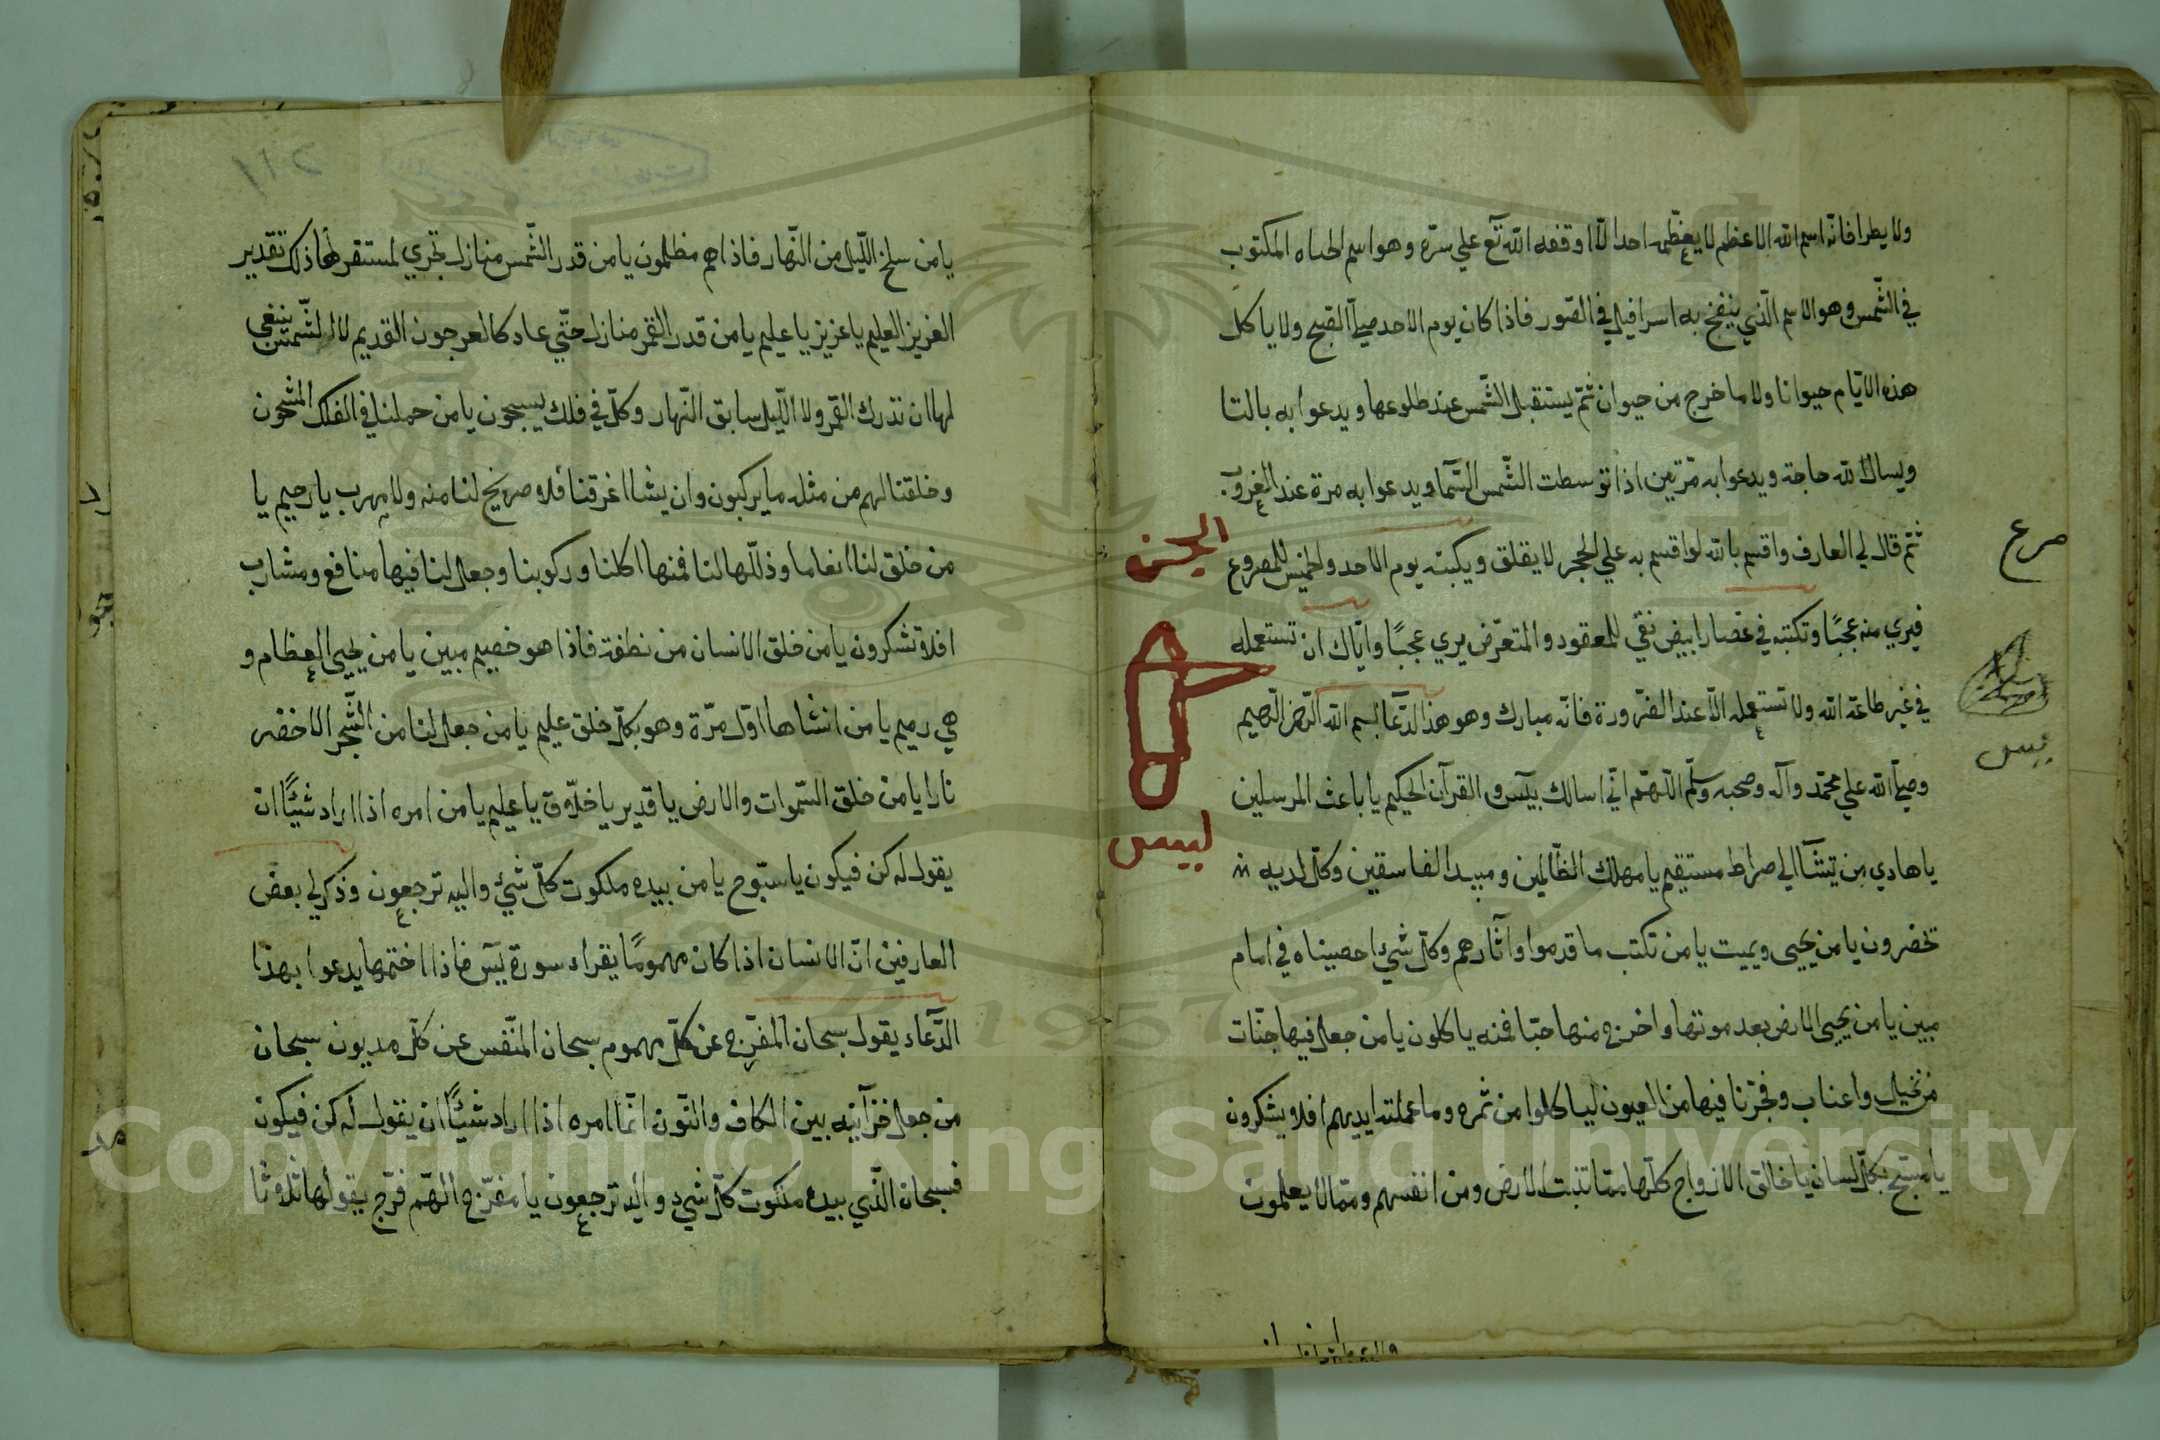 ولا يطرا فانه اسم الله الاعظم لا يعظمه احد الا اوقفه الله تع علي سره وهو اسم المكتوب
في الشمس وهو الاسم الذي ينفخ به اسرافيل في الصور فاذا كان يوم الاحد صلي الصبح ولا ياكل
هذه الايام حيوانا ولا ما خرج من حيوان ثم يستقبل الشمس عند طلوعها ويدعوا به بالتا
ويسال الله حاجة ويدعوا به مرتين اذا توسطت الشمس السما ويدعوا به مرة عند الغروب
ثم قال لي العارف واقسم بالله لو اقسم به علي الحجر لا يقلق ويكبته يوم الاحد والخميس للمصروع
فيري منه عجبًا وتكتبه في غضار ابيض نقي للمعقود والمتعرض يري عجبًا واياك ان تستعمله
في غير طاعة الله ولا تستعمله الا عند الضرورة فانه مبارك وهو هذا الدعا بسم الله الرحمن الرحيم
وصلي الله علي محمد وآله وصحبه وسلم اللهم اني اسالك بيس والقرآن الحكيم يا باعث المرسلين
يا هادي من يشآ الي صراط مستقيم يا مهلك الظالمين ومبيد الفاسقين وكل لديه
تحضرون يا من يحيي ويميت يا من تكتب ما قدموا وآثارهم وكل شيء احصيناه في امام
مبين يا من يحيي الارض بعد موتها واخرج منها حبا فمنه ياكلون يا من جعل فيها جنات
من نخيل واعناب وفجرنا فيها من العيون لياكلوا من ثمره وما عملته ايديهم افلا يشكرون
يا مسبح بكل لسان يا خالق الازواج كلها مما تنبت الارض ومن انفسهم ومما لا يعلمون
صرع
يس
يس
٢١١
يا من سلخ الليل من النهار فاذا هم مظلمون يا من قدر الشمس منازل تجري لمستقر لها ذلك تقدير
العزيز العليم يا عزيز يا عليم يا من قدر القمر منازل حتي عاد كالعرجون القديم لا الشمس ينبغي
لها ان تدرك القمر ولا الليل سابق النهار وكل في فلك يسبحون يا من حملنا في الفلك المشحون
وخلقنا لهم من مثله ما يركبون وان يشا اغرقنا فلا صريخ لنا منه ولا مهرب يا رحيم يا
من خلق لنا انعاما وذللها لنا فمنها اكلنا وركوبنا وجعل لنا فيها منافع ومشارب
افلا تشكرون يا من خلق الانسان من نطفة فاذا هو خصيم مبين يا من يحيي العظام و
هي رميم يا من انشاها اول مرة وهو بكل خلق عليم يا من جعل لنا من الشجر الاخضر
نارا يا من خلق السموات والارض يا قدير يا خلاق يا عليم يا من امره اذا اراد شيئًا ان
يقول له كن فيكون يا سبوح يا من بيده ملكوت كل شيء واليه ترجعون وذكر لي بعض
العارفين ان الانسان اذا كان مهمومًا يقراء سورة يس فاذا اختمها يدعوا بهذا
الدعاء يقول سبحان المفرج عن كل مهموم سبحان المنفس عن كل مديون سبحان
من جعل خزآئنه بين الكاف والنون انما امره اذا اراد شيئًا ان يقول له كن فيكون
فسبحان الذي بيده ملكوت كل شيء واليه ترجعون يا مفرج الهم فرج يقولها ثلاثا
Copyright © King Saud University
1957